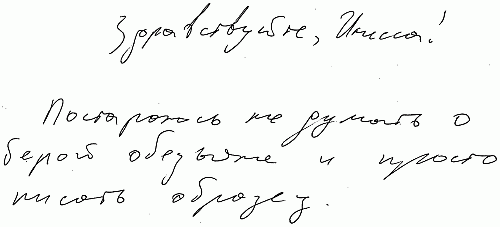 Здравствуйте, Инесса!
Постараюсь не думать о
белой обезьяне и просто
писать образец.